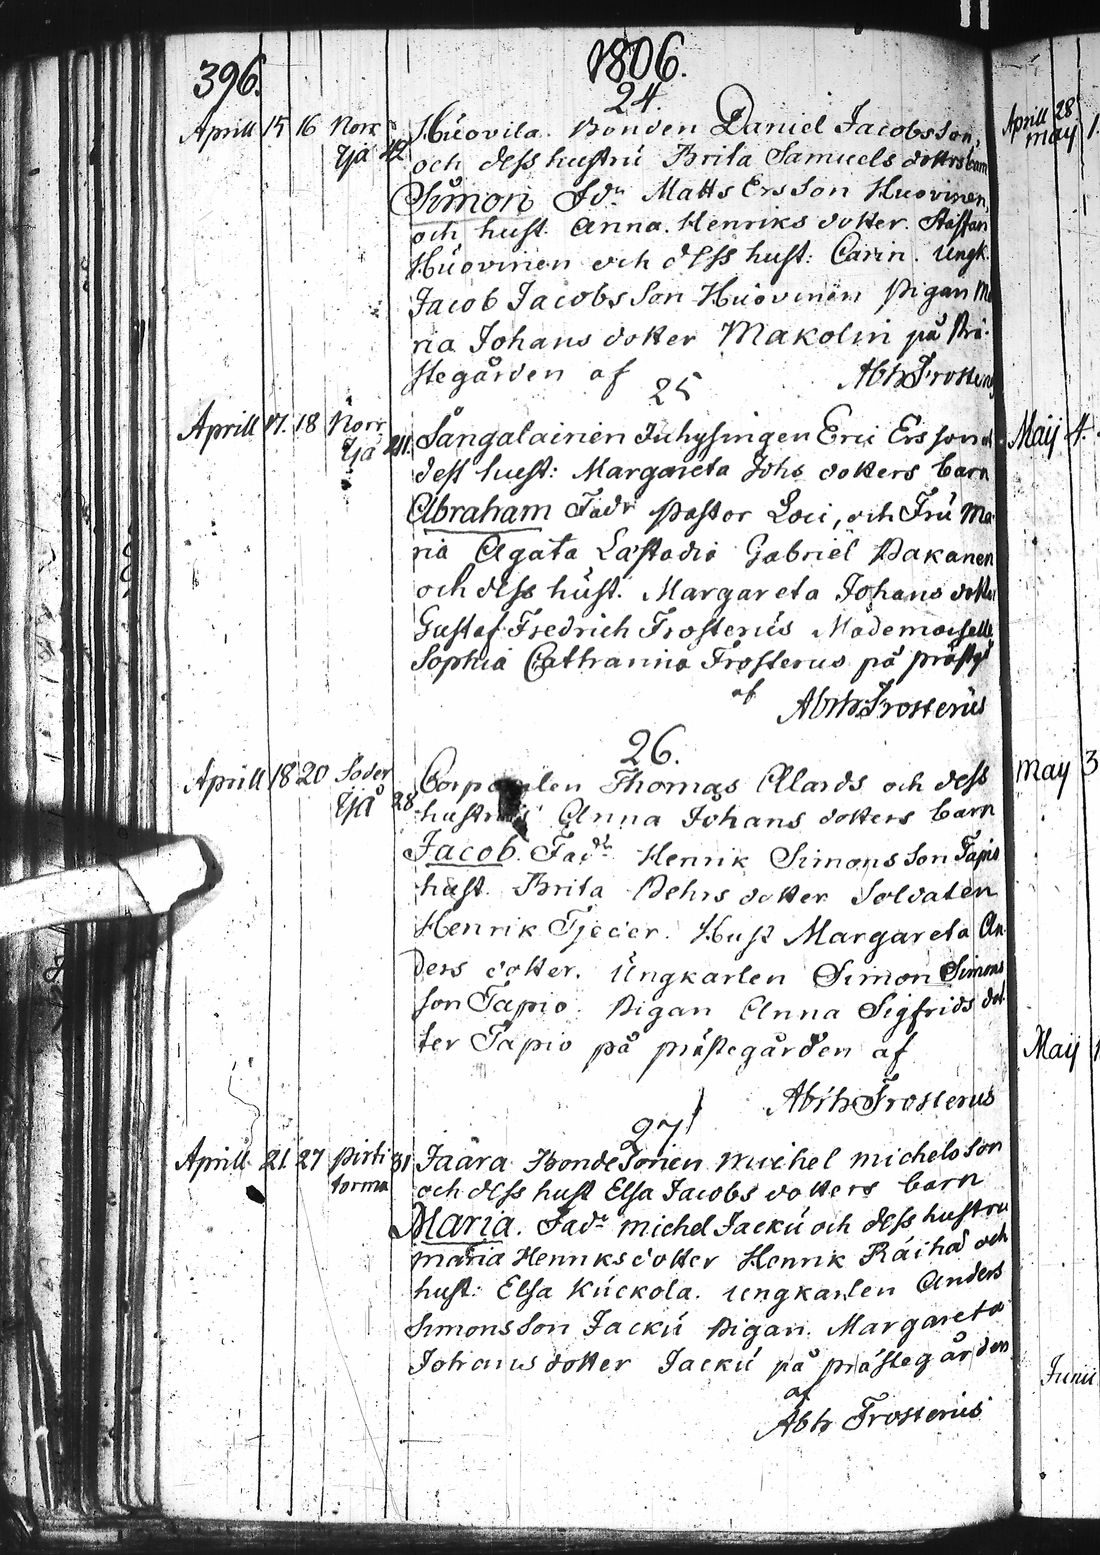 396.
1806.
24.
Aprill 15 16 Norr Huovila. Bonden Daniel Jacobsson,
Yjå 42 och dess hustru Brita Samuels dotters barn
Simon Fdr Matts Ersson Huovinen,
och hust. Anna. Henriks dotter. Staffan
Huovinen och dess hust: Carin. Ungk.
Jacob Jacobs Son Huovinen Pigan Ma
ria Johans dotter Makolin på Prä-
stegården af Abrh Frosterus
25
Aprill 17. 18 Norr Sangalainen Inhysingen Eric Ersson o
Yjå 41. dess hust: Margareta Johs dotters barn
Abraham Fadr Pastor Loci, och Fru Ma-
ria Agata Lästadia Gabriel Pakanen
och dess hust. Margareta Johans dotter
Gustaf Fredrich Frosterus Mademoiselle
Sophia Cathrarina Frosterus på prästgn
af
Abrh Frosterus
26.
Aprill 18 20 Söder Corporalen Thomas Alards och dess
Yjå 28. hustrus Anna Johans dotters barn
Jacob. Fadr Henrik Simons Son Tapio
hust. Brita Pehrs dotter Soldaten
Henrik Tjeder. Hust Margareta An-
ders dotter. Ungkarlen Simon Simons
son Tapio. Pigan Anna Sigfrids dot
ter Tapio på prästegården af
Abrh Frosterus
27
Aprill 21 27 Pirti 31 Jaara BondeSonen Michel michelsson
torma och dess hust Elsa Jacobs dotters barn
Maria. Fadr michel Jackù och dess hustru
maria Henriksdotter Henrik Räihä och
hust: Elsa Kuckola. Ungkarlen Anders
Simons Son Jackù Pigan Margareta
Johans dotter Jackù på prästegården
af
Abrh Frosterus
Aprill 28
may 1.
Maij 4.
May 3
Maij 1
Junii